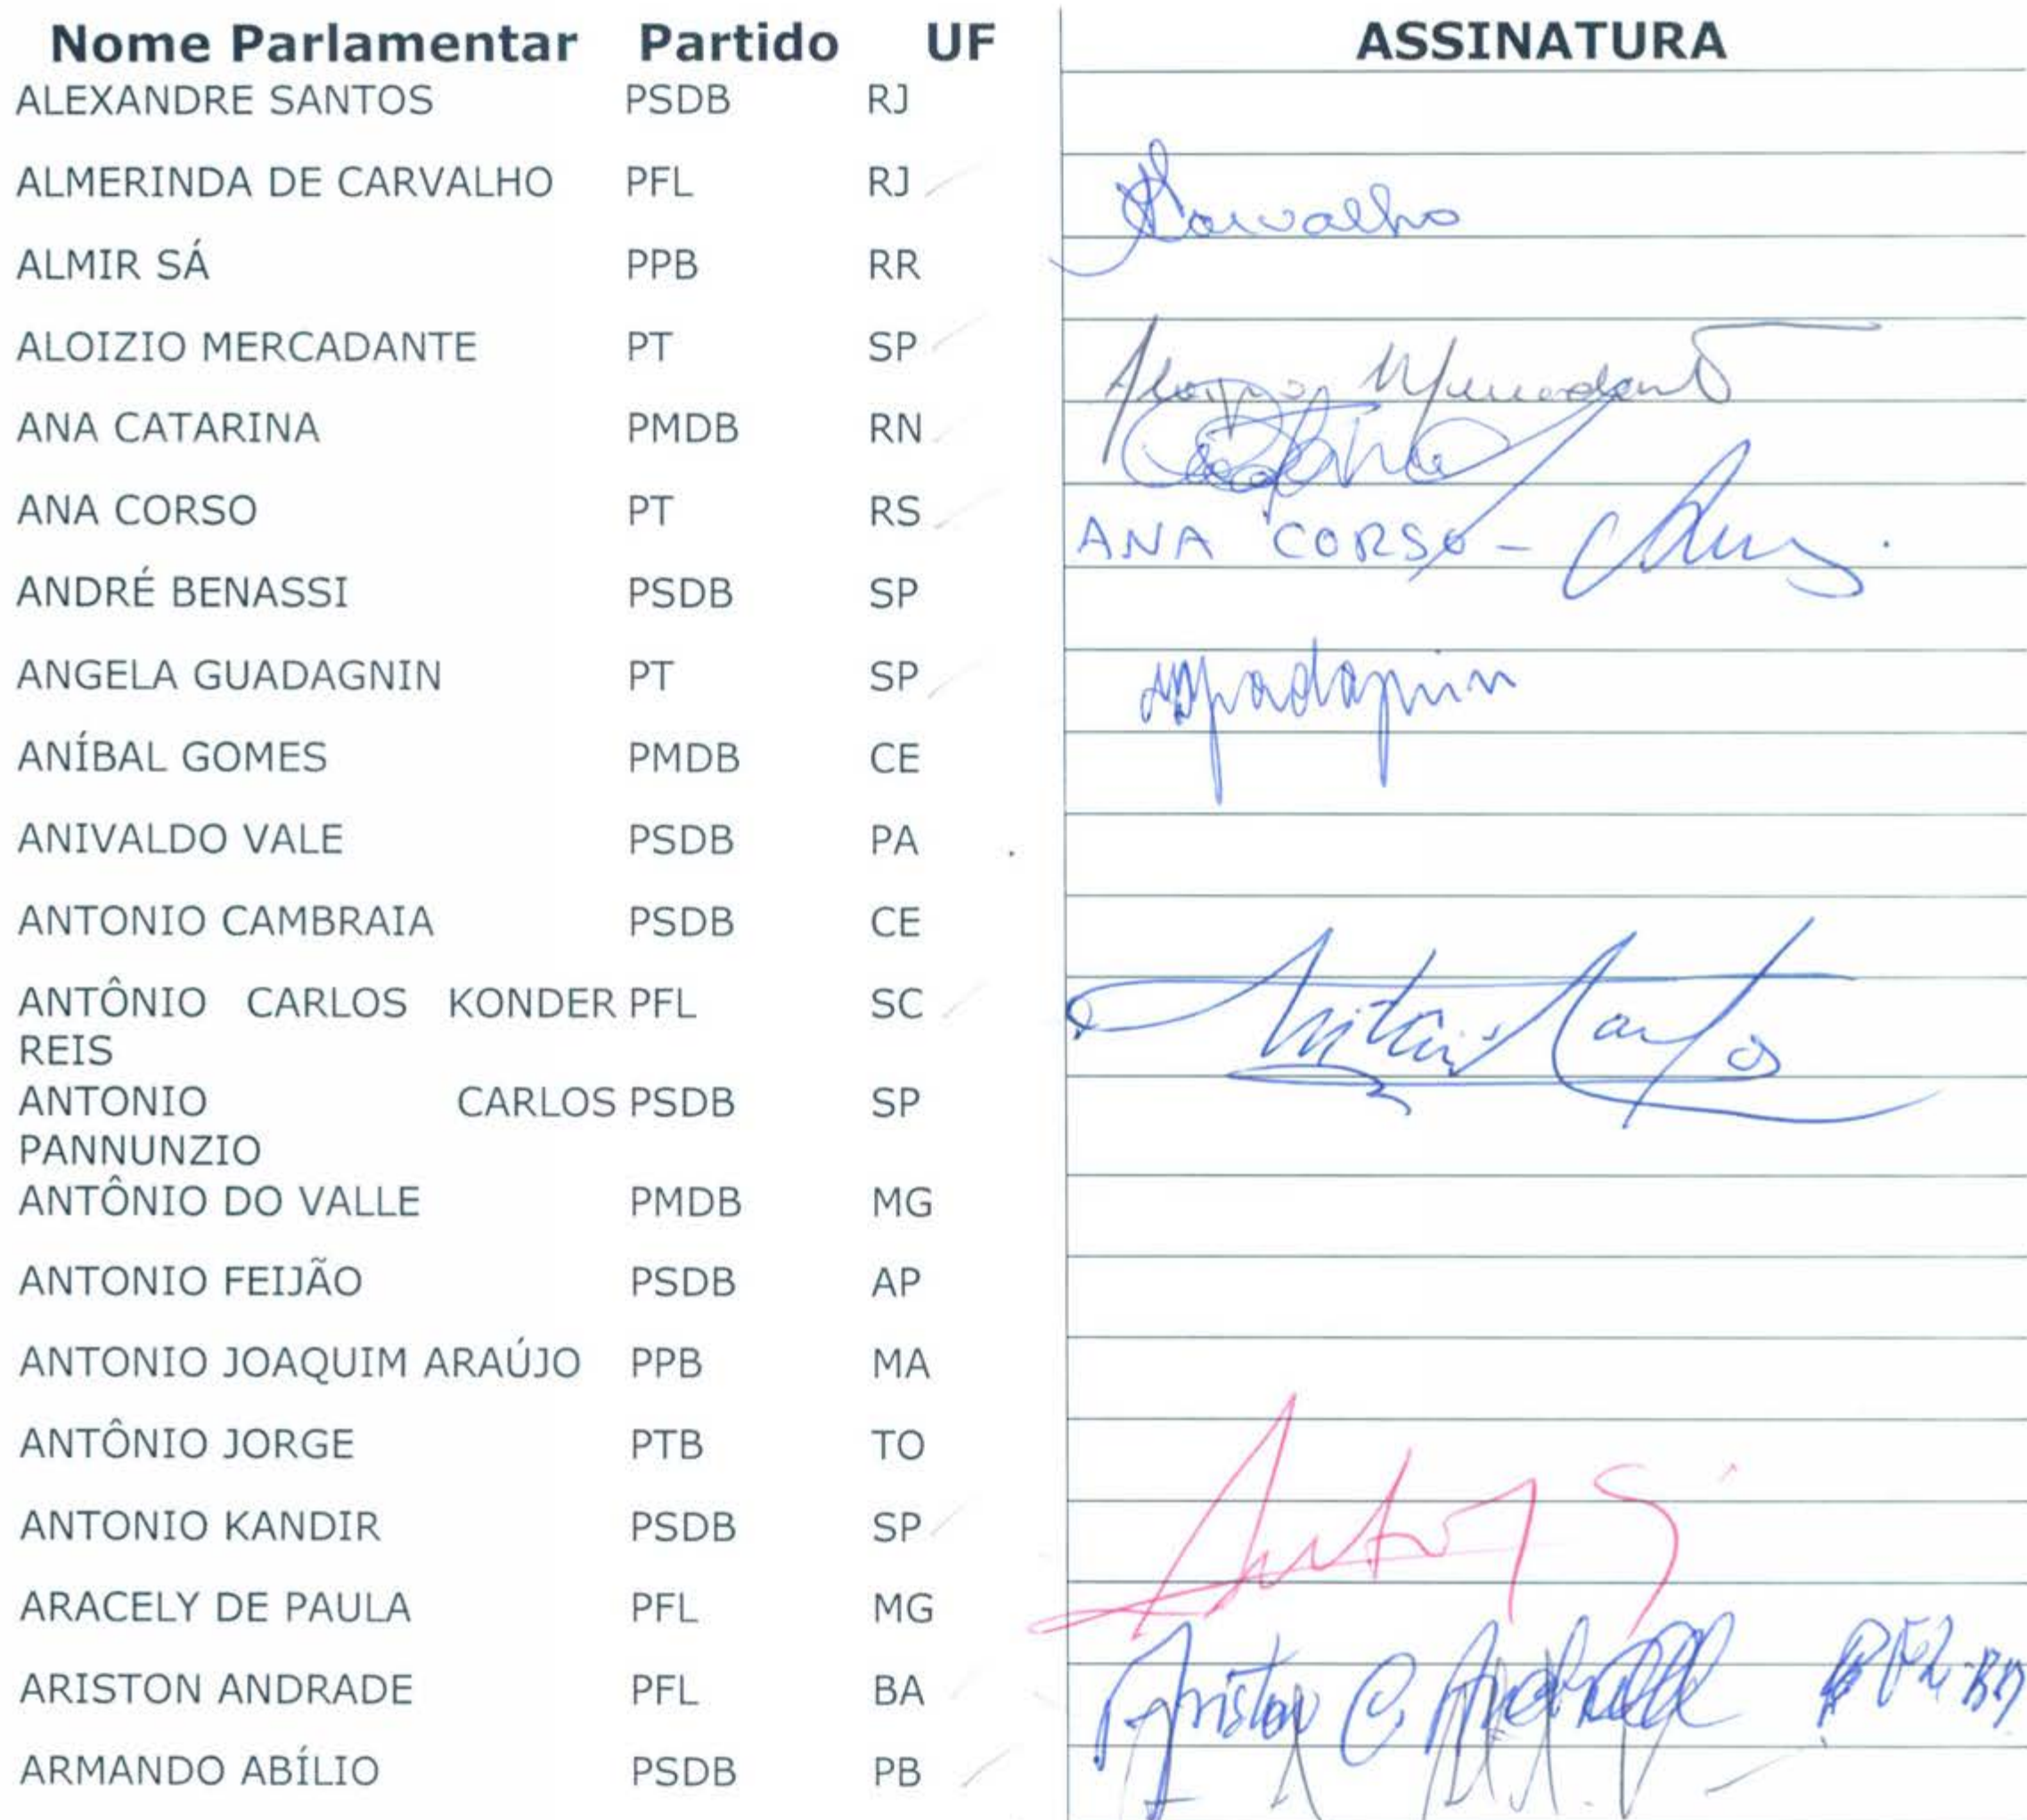 Nome Parlamentar Partido UF ASSINATURA
ALEXANDRE SANTOS PSDB RJ
ALMERINDA DE CARVALHO PFL RJ Carvalho
ALMIR SÁ PPB RR
ALOIZIO MERCADANTE PT SP
ANA CATARINA PMDB RN
ANA CORSO PT RS ANA CORSO -
ANDRÉ BENASSI PSDB SP
ANGELA GUADAGNIN PT SP
ANÍBAL GOMES PMDB CE
ANIVALDO VALE PSDB PA
ANTONIO CAMBRAIA PSDB CE
ANTÔNIO CARLOS KONDER PFL SC
REIS
ANTONIO CARLOS PSDB SP
PANNUNZIO
ANTÔNIO DO VALLE PMDB MG
ANTONIO FEIJÃO PSDB AP
ANTONIO JOAQUIM ARAÚJO PPB MA
ANTÔNIO JORGE PTB TO
ANTONIO KANDIR PSDB SP
ARACELY DE PAULA PFL MG
ARISTON ANDRADE PFL BA Ariston C. Andrade PFL-BA
ARMANDO ABÍLIO PSDB PB